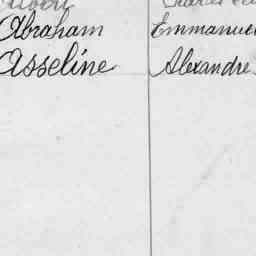 Abraham Emmanuel
Asseline Alexandre